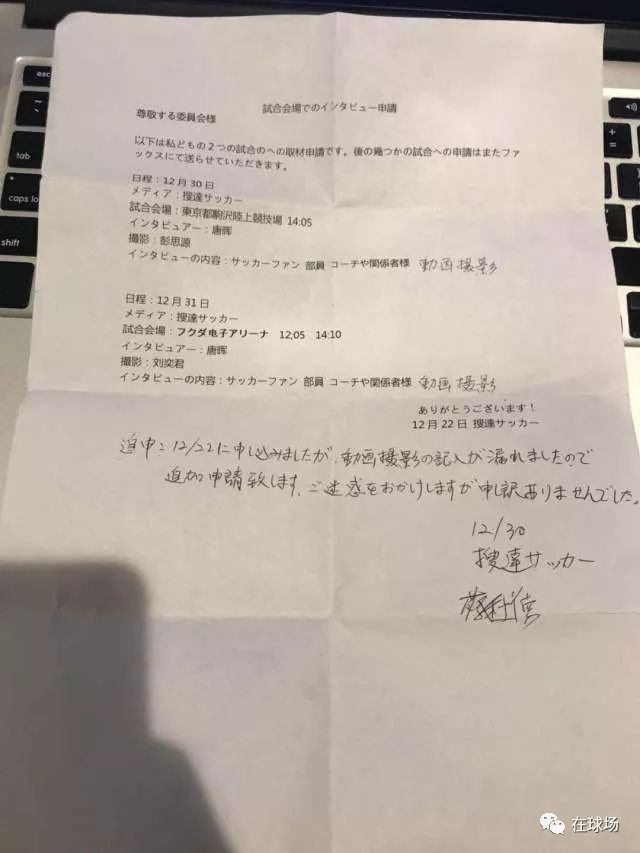 試合会場でのインタビュー申請
尊敬する委員会様
以下は私どもの２つの試合のへの取材申請です。後の幾つかの試合への申請はまたファ
ックスにて送らせていただきます。
日程：12月30日
メディア：捜達サッカー
試合会場：東京都駒沢陸上競技場 14:05
インタビュアー：唐晖
撮影：彭思源
インタビューの内容：サッカーファン 部員 コーチや関係者様 動画撮影
日程：12月31日
メディア：捜達サッカー
試合会場：フクダ电子アリーナ 12;05 14:10
インタビュアー：唐晖
撮影：刘奕君
インタビューの内容：サッカーファン 部員 コーチや関係者様 動画撮影
ありがとうございます！
12月22日 捜達サッカー
追申：12/22に申し込みましたが、動画撮影の記入が漏れましたので
追加申請致します。ご迷惑をおかけしますが申し訳ありませんでした。
12/30
捜達サッカー
esc
tab
caps lo
shift
在球场